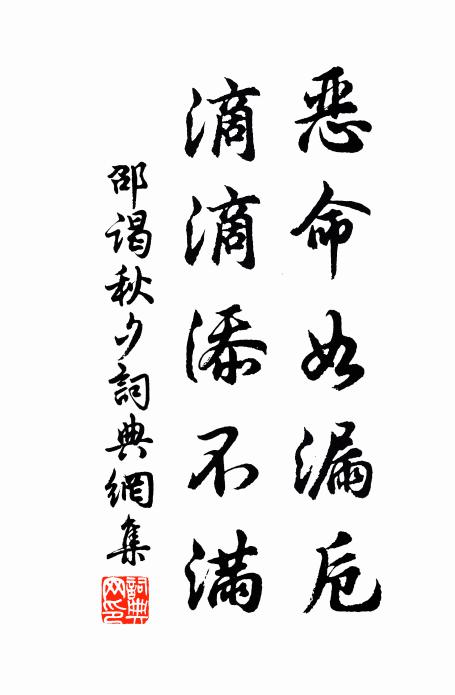 恶命如漏卮
滴滴添不满
邵谒秋夕詞典網集
詞典網印